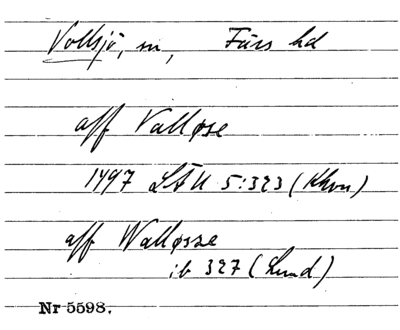 Vollsjö, sn, Färs hd
aff Valløse
1497 LÄU 5:323 (Khvn)
aff Walløsze
ib 327 (Lund)
Nr 5598.